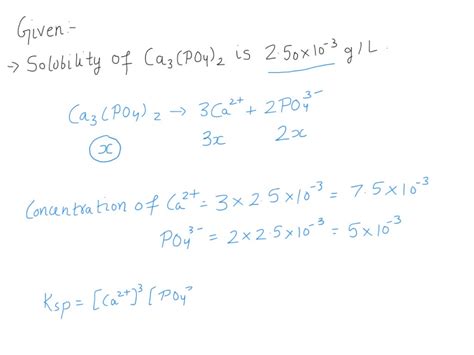 Given:-
→ Solubility of Ca₃(PO₄)₂ is 2.50×10⁻³ g/L.
Ca₃(PO₄)₂ → 3Ca²⁺ + 2PO₄³⁻
x 3x 2x
Concentration of Ca²⁺ = 3 × 2.5×10⁻³ = 7.5×10⁻³
PO₄³⁻ = 2×2.5×10⁻³ = 5×10⁻³
Ksp = [Ca²⁺]³ [PO₄